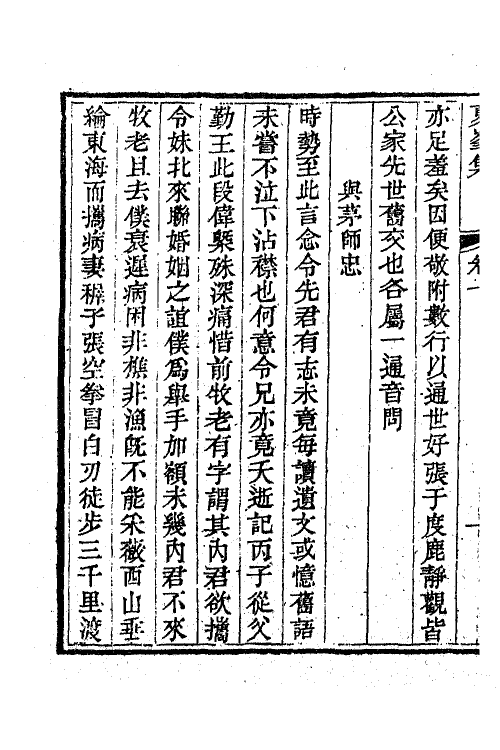 夏峯集　卷一
亦足羞矣因便敬附數行以通世好張于度鹿靜觀皆
公家先世舊交也各屬一通音問
與茅師忠
時勢至此言念令先君有志未竟每讀遺文或憶舊語
未嘗不泣下沾襟也何意令兄亦竟夭逝記丙子從父
勤王此段偉槩殊深痛惜前牧老有字謂其內君欲攜
令妹北來聯婚姻之誼僕爲舉手加額未幾內君不來
牧老且去僕衰遲病困非樵非漁旣不能采薇西山垂
綸東海而攜病妻稺子張空拳冒白刃徒步三千里渡